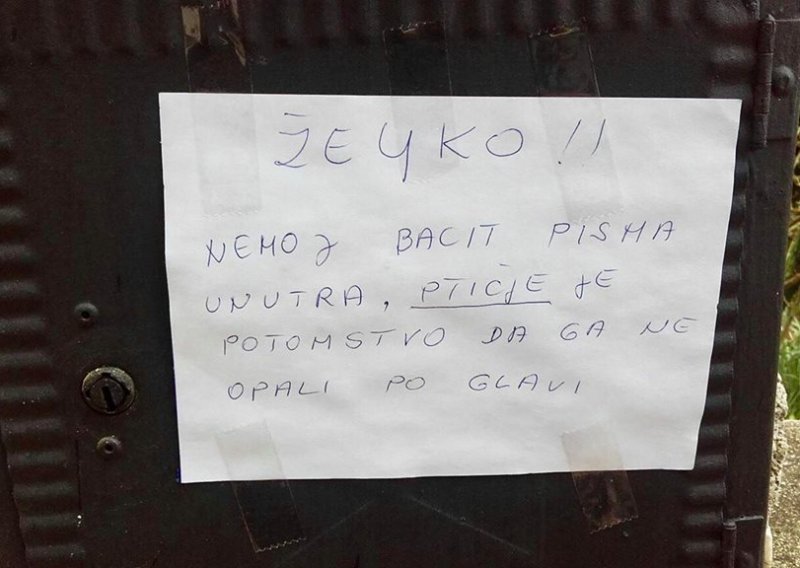 ŽELJKO !!
NEMOJ BACIT PISMA
UNUTRA, PTICJE JE
POTOMSTVO DA GA NE
OPALI PO GLAVI